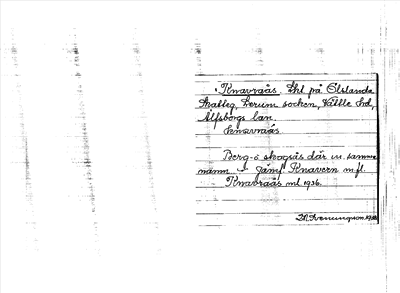 Knavraås. Skl på Ölslanda
Skatteg, Lerum socken, Vättle hd,
Älfsborgs län.
Knavraås
Berg o skogsås där m. samma
namn. Jämf. Knavern m.fl.
Knavraås ml 1936.
1936